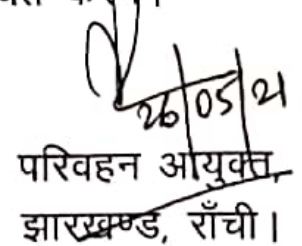 26/05/21
परिवहन आयुक्त,
झारखण्ड, राँची।